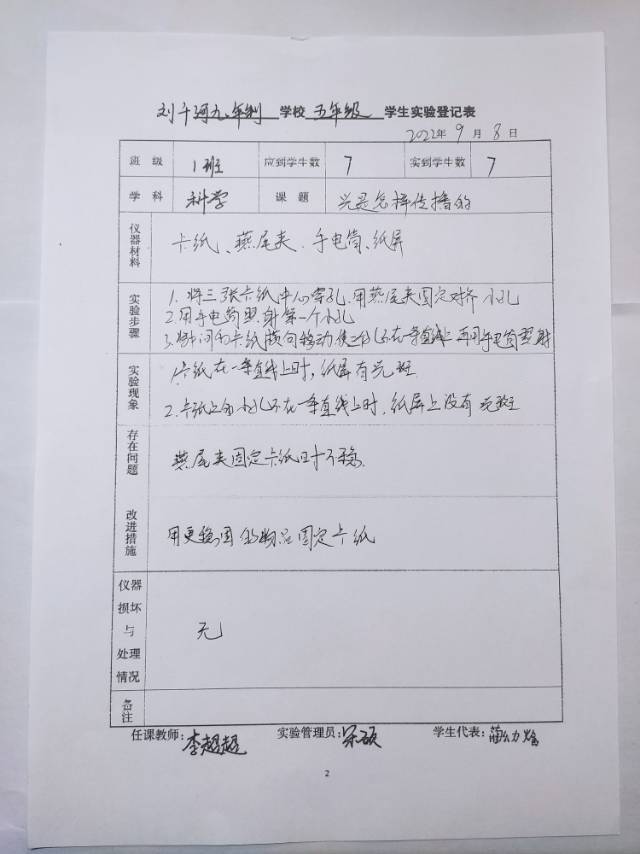 刘千河九年制 学校 五年级 学生实验登记表
2022年9月8日
班级 1班 应到学生数 7 实到学生数 7
学科 科学 课题 光是怎样传播的
仪器材料 卡纸、燕尾夹、手电筒、纸屏
实验步骤 1.将三张卡纸中心穿孔,用燕尾夹固定对齐小孔
2.用手电筒照射第一个小孔
3.将中间的卡纸横向移动使之小孔不在一条直线上再用手电筒照射
实验现象 1.卡纸在一条直线上时,纸屏有光斑
2.卡纸上的小孔不在一条直线上时,纸屏上没有光斑
存在问题 燕尾夹固定卡纸时不稳.
改进措施 用更稳固的物品固定卡纸
仪器损坏与处理情况 无
备注
任课教师:李超超 实验管理员:宋硕 学生代表:
2